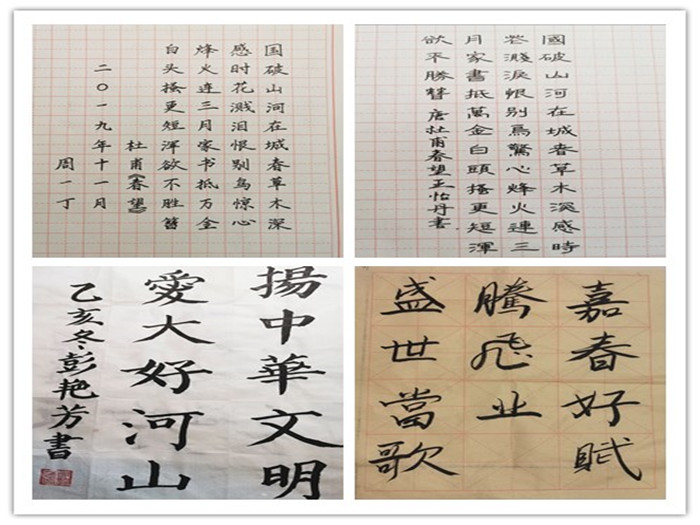 国破山河在城春草木深
感时花溅泪恨别鸟惊心
烽火连三月家书抵万金
白头搔更短浑欲不胜簪
杜甫《春望》
二〇一九年十一月
周一丁
國破山河在城春草木深感時
花濺淚恨别鳥驚心烽火連三
月家書抵萬金白頭搔更短渾
欲不勝簪 唐杜甫春望 怡丹書
揚中華文明
愛大好河山
乙亥冬彭艳芳書
嘉春好賦
騰飛业
盛世當歌